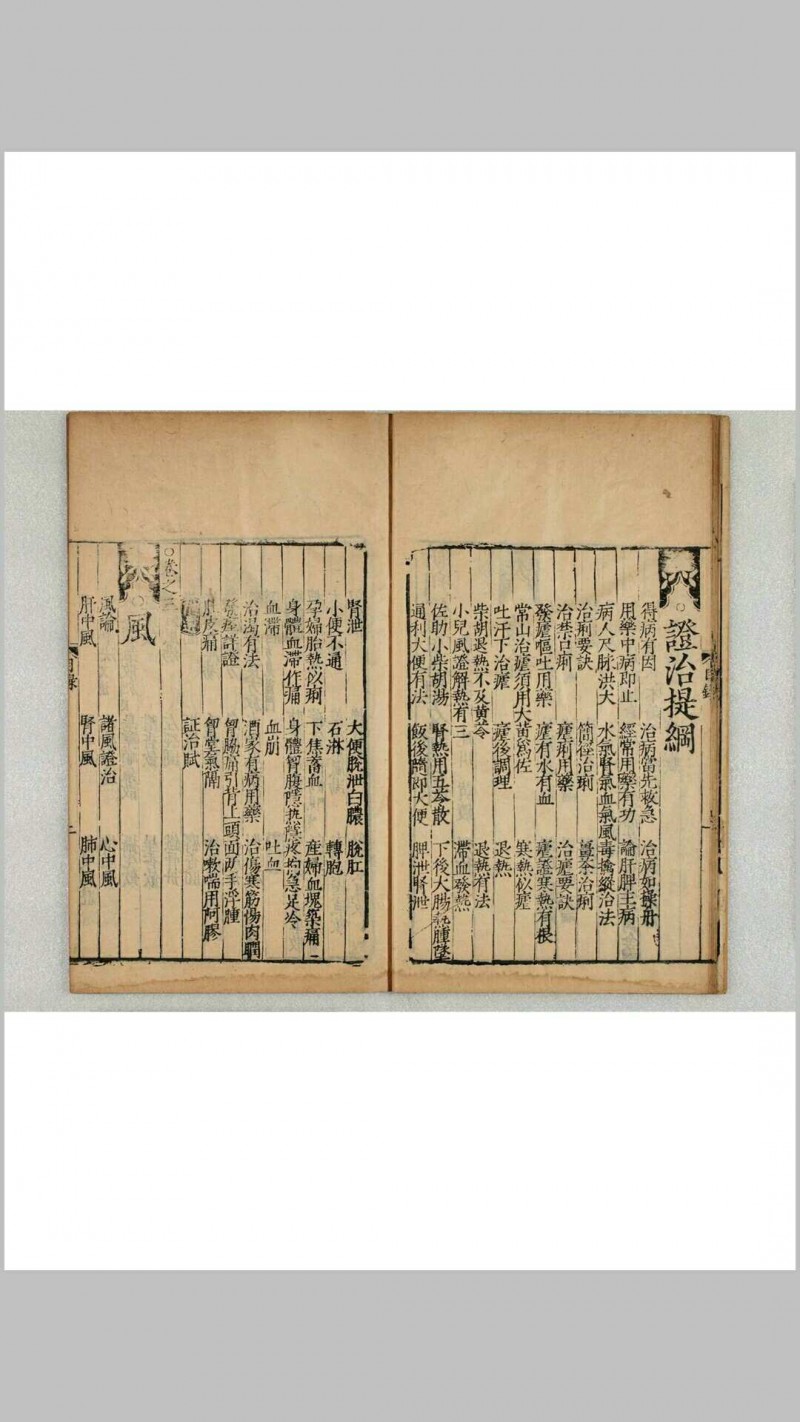 證治提綱
得病有因 治病當先救急 治病如操舟
用藥中病即止 經常用藥有功 論肝脾主病
病人尺脉洪大 水氣腎氣血氣風毒擒縱治法
治痢要訣 簡徑治痢 薑茶治痢
治禁口痢 瘧痢用藥 治瘧要訣
發瘧嘔吐用藥 瘧有水有血 瘧蠱寒熱有根
常山治瘧須用大黄爲佐 寒熱似瘧
吐汗下治瘧 瘧後調理 退熱
柴胡退熱不及黄芩 退熱有法
小兒風證解熱有三 滯血發熱
佐助小柴胡湯 腎熱用五苓散 下後大腸熱腫墜
通利大便有法 飯後隨即大便 脾泄腎泄
腎泄 大便脫泄白膿 脫肛
小便不通 石淋 轉胞
孕婦胎熱似痢 下焦畜血 産婦血塊築痛
身體血滯作痛 身體胷腹隱熱隱疼拘急足冷
血滯 血崩 吐血
治渴有法 酒家有病用藥 治傷寒筋傷肉瞤
發痧詳證 胷膈痛引背上頭面兩手浮腫
脾疼痛 胷堂氣隔 治嗽喘用阿膠
証治賦
卷之三
風
風論 諸風證治 心中風
肝中風 腎中風 肺中風
目錄